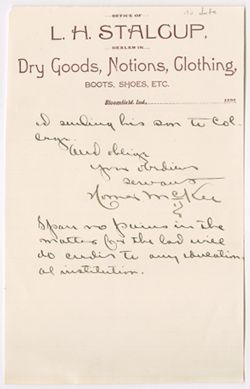 OFFICE OF
L. H. STALCUP,
DEALER IN
Dry Goods, Notions, Clothing,
BOOTS, SHOES, ETC.
Bloomfield, Ind.
d sending his son to Col-
lege.
And oblige
Your obedien
servant
Homer McKee
Spare no pains in the
matter for the lad will
do credit to any education
al institution.